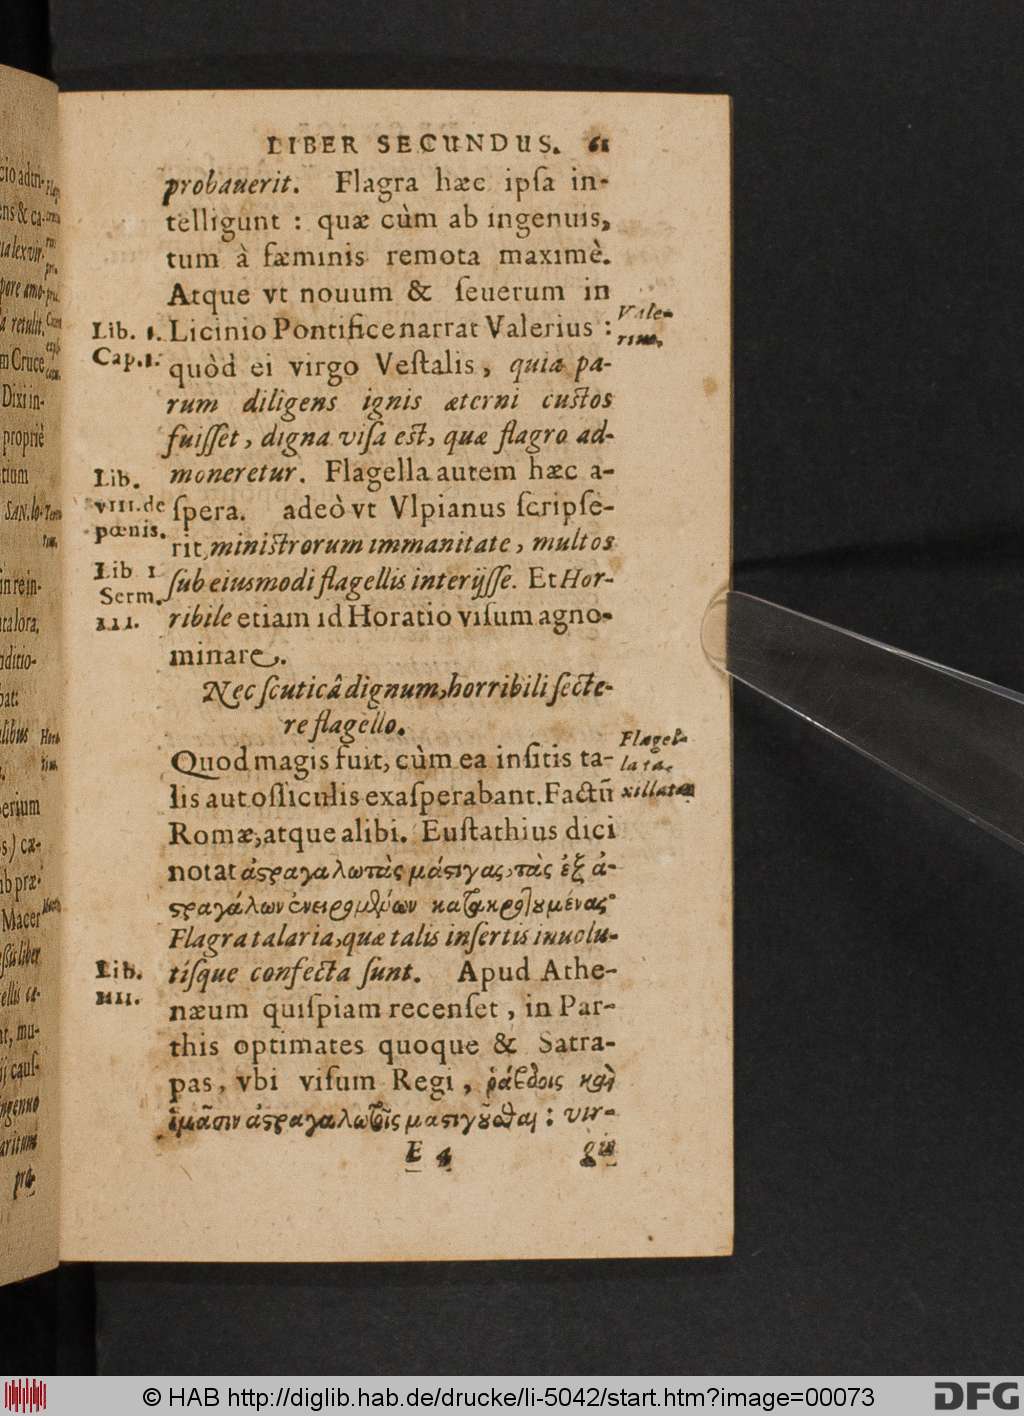 LIBER SECUNDUS. 61
probauerit. Flagra hæc ipſa in-
telligunt : quæ cùm ab ingenuis,
tum à fæminis remota maximè.
Atque vt nouum & ſeuerum in
Licinio Pontifice narrat Valerius :
quòd ei virgo Veſtalis, quia pa-
rum diligens ignis æterni cuſtos
fuiſſet, digna viſa eſt, quæ flagro ad-
moneretur. Flagella autem hæc a-
ſpera. adeò vt Vlpianus ſcripſe-
rit, miniſtrorum immanitate, multos
ſub eiusmodi flagellis interijſſe. Et Hor-
ribile etiam id Horatio viſum agno-
minare.
Nec ſcuticâ dignum, horribili ſecte-
re flagello.
Quod magis fuit, cùm ea inſitis ta-
lis aut oſſiculis exaſperabant. Factū
Romæ, atque alibi. Euſtathius dici
notat ἀϛραγαλωτὰς μάϛιγας, τὰς ἐξ ἀ-
ϛραγάλων
Flagra talaria, quæ talis inſertis inuolu-
tiſque confecta ſunt. Apud Athe-
næum quiſpiam recenſet, in Par-
this optimates quoque & Satra-
pas, vbi viſum Regi, ῥάβδοις καὶ
ἱμᾶσιν ἀϛραγαλωτοῖς μαϛιγοῦσθαι : vir-
E 4 gis
Lib. 1.
Cap. 1.
Lib.
VIII. de
pœnis.
Lib 1
Serm.
III.
Lib.
IIII.
Vale-
rius.
Flagel-
la ta-
xillata
© HAB http://diglib.hab.de/drucke/li-5042/start.htm?image=00073
DFG